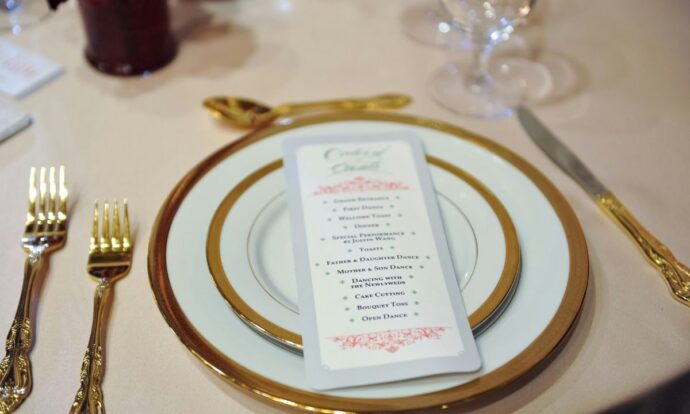 Order of
Events
Grand Entrance
First Dance
Welcome Toast
Dinner
Special Performance
by Justin Wang
Toasts
Father & Daughter Dance
Mother & Son Dance
Dancing with
the Newlyweds
Cake Cutting
Bouquet Toss
Open Dance